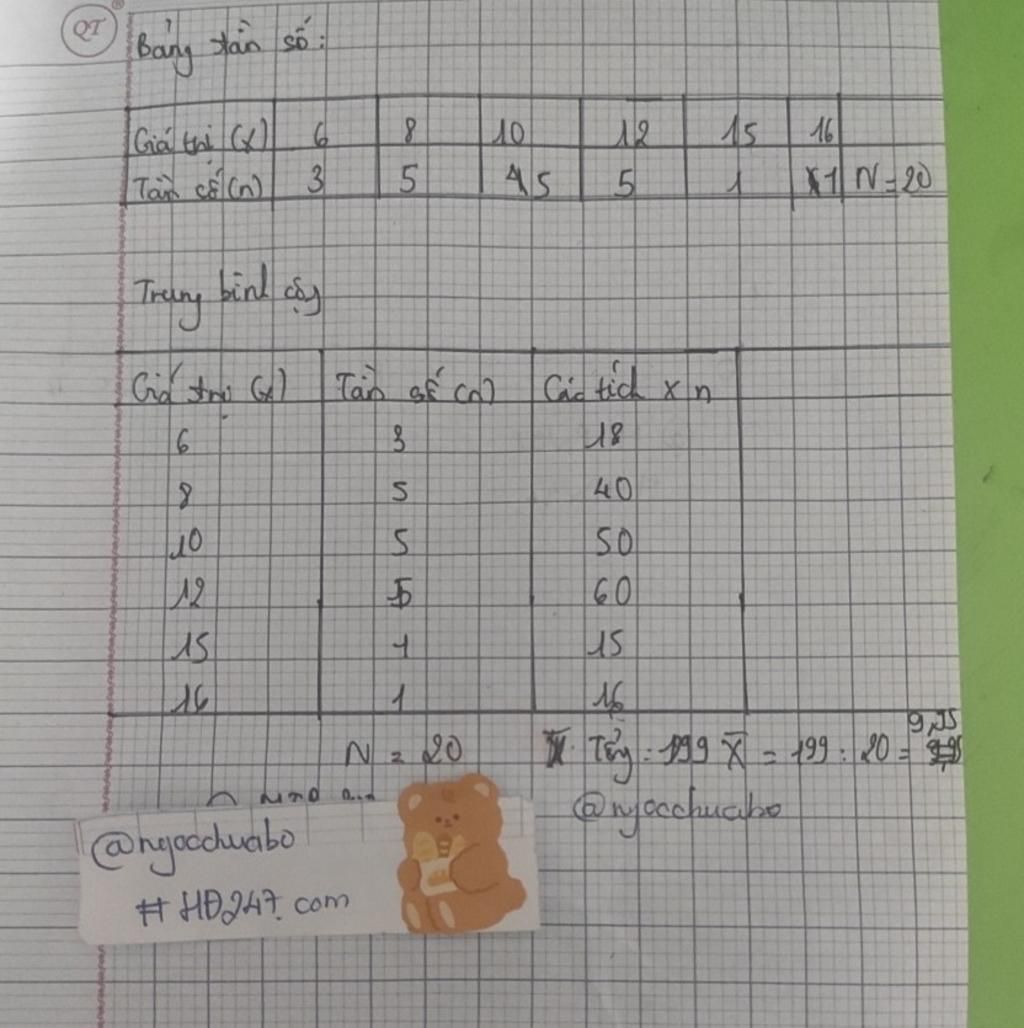 QT
Bảng tần số:
Giá trị (x) 6 8 10 12 15 16
Tần số (n) 3 5 5 5 1 1 N = 20
Trung bình cộng
Giá trị (x) Tần số (n) Các tích x n
6 3 18
8 5 40
10 5 50
12 5 60
15 1 15
16 1 16
N = 20 Tổng: 199 X̅ = 199 : 20 = 9,95
@ngocchuabo
@ngocchuabo
# HĐ247.com